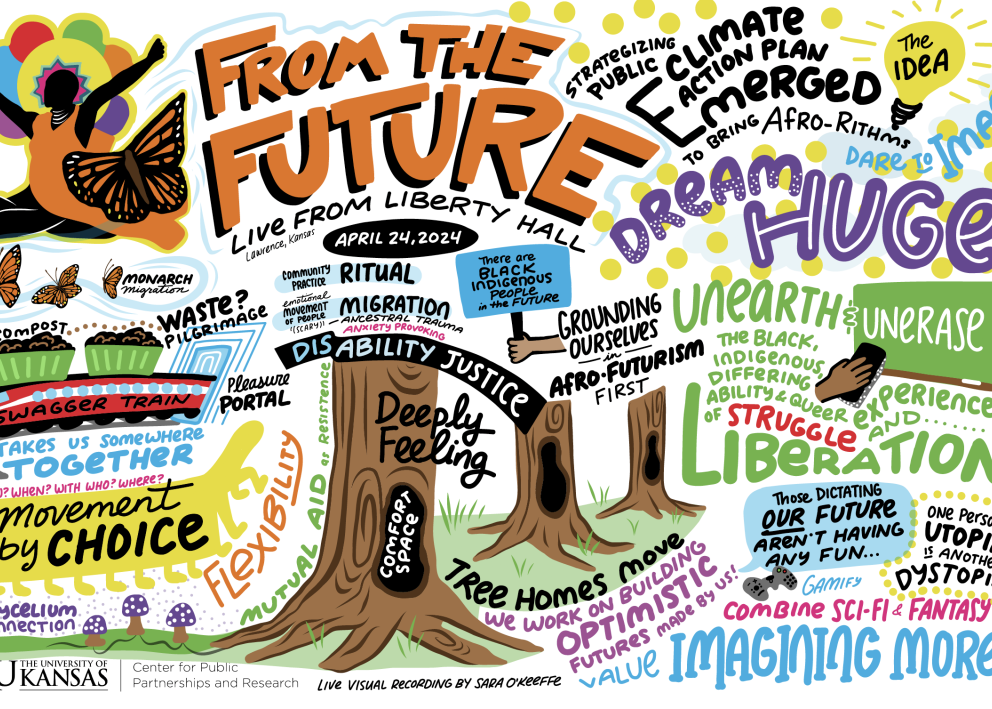 FROM THE
FUTURE
LIVE FROM LIBERTY HALL
Lawrence, Kansas
APRIL 24, 2024
STRATEGIZING
PUBLIC
CLIMATE
ACTION PLAN
EMERGED
TO BRING AFRO-RITHMS
The
IDEA
DARE TO
DREAM
HUGE
MONARCH
migration
COMPOST
WASTE?
PILGRIMAGE
SWAGGER TRAIN
Pleasure
PORTAL
TAKES US SOMEWHERE
TOGETHER
WHEN? WITH WHO? WHERE?
Movement
by CHOICE
FLEXIBILITY
MUTUAL AID as RESISTENCE
COMMUNITY
PRACTICE
RITUAL
emotional
MOVEMENT
OF PEOPLE
(SCARY))
MIGRATION
- ANCESTRAL TRAUMA
ANXIETY PROVOKING
DISABILITY JUSTICE
Deeply
Feeling
COMFORT
SPACE
There are
BLACK
INDIGENOUS
PEOPLE
in the FUTURE
GROUNDING
OURSELVES
in
AFRO-FUTURISM
FIRST
TREE HOMES MOVE
WE WORK ON BUILDING
OPTIMISTIC
FUTURES MADE BY US!
UNEARTH
UNERASE
THE BLACK,
INDIGENOUS,
DIFFERING
ABILITY & QUEER EXPERIENCE
OF STRUGGLE AND........
LIBERATION
Those DICTATING
OUR FUTURE
AREN'T HAVING
ANY FUN...
GAMIFY
ONE
UTOPI
IS ANOTHE
DYSTOPI
COMBINE SCI-FI & FANTASY
VALUE IMAGINING MORE
THE UNIVERSITY OF
KANSAS
Center for Public
Partnerships and Research
LIVE VISUAL RECORDING BY SARA O'KEEFFE